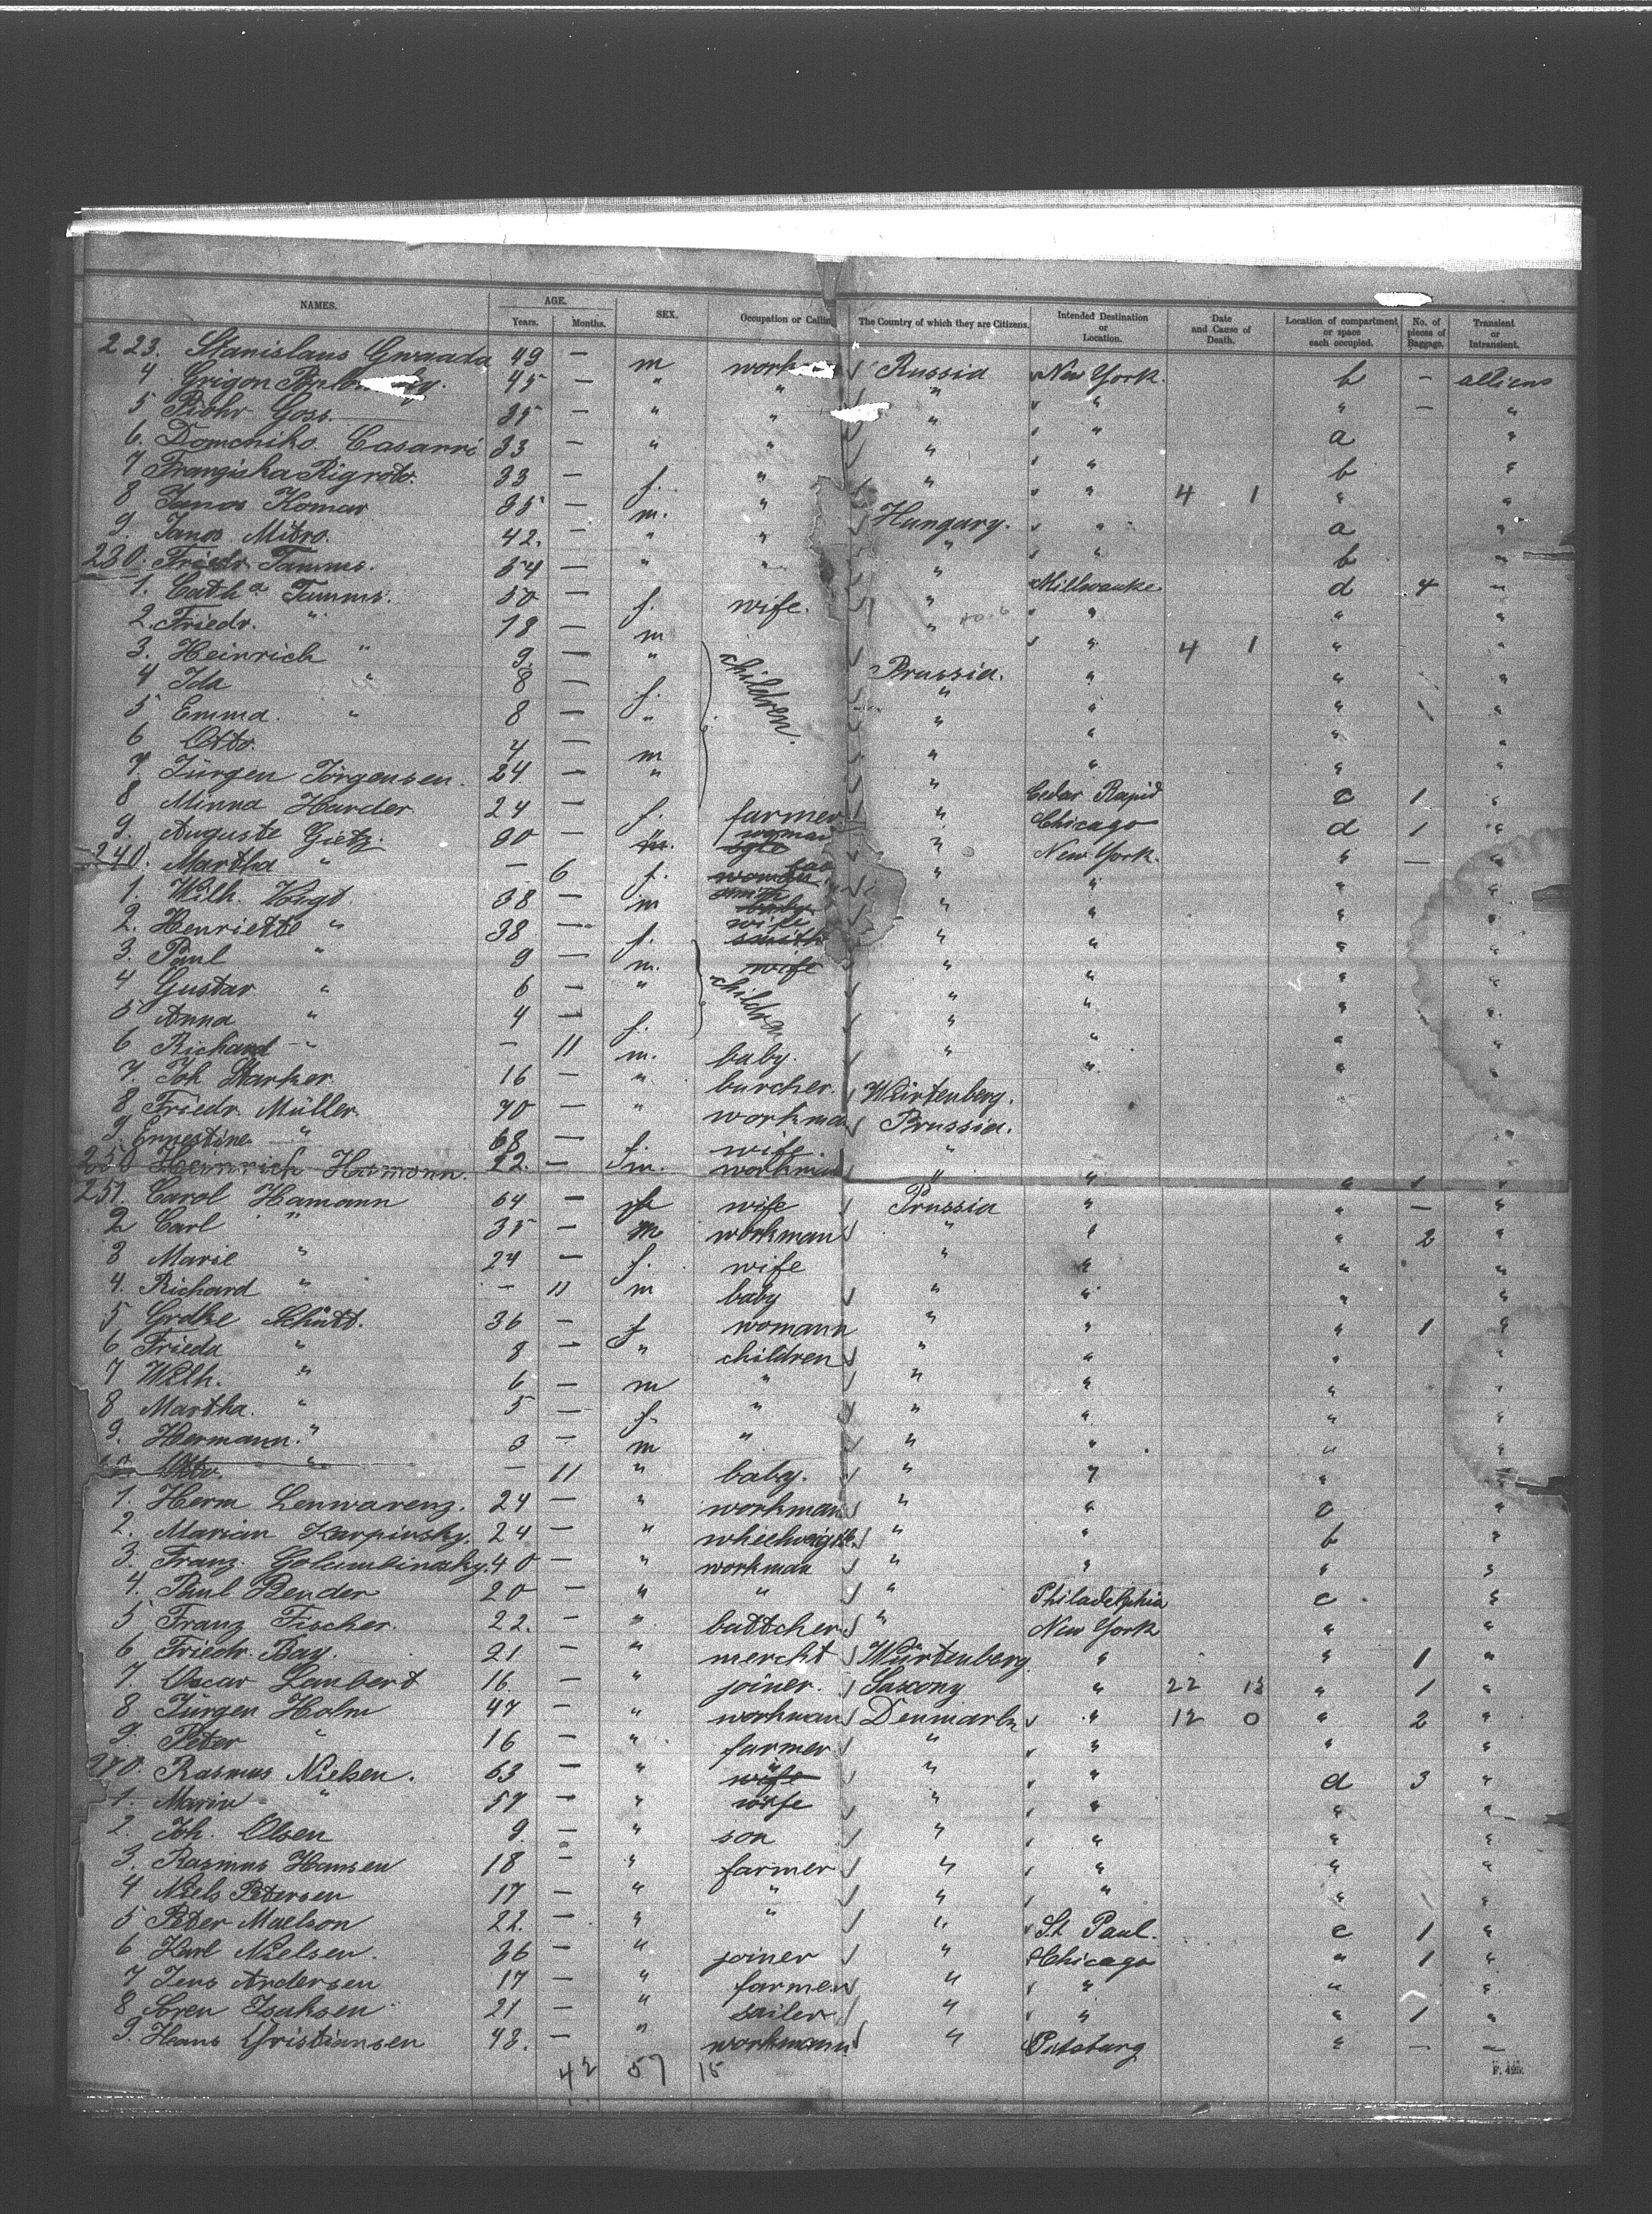 NAMES. AGE. Years. Months. SEX. Occupation or Calling The Country of which they are Citizens. Intended Destination or Location. Date and Cause of Death. Location of compartment or space each occupied. No. of pieces of Baggage. Transient or Intransient.
223. Stanislaus Gwaada 49 — m work Russia New York. b — alliens
4 Grigon 45 — " " " " " — "
5 Piohr Goss. 35 — " " " " " "
6. Domeniko. Casarri 33 — " " " " a "
7 Franziska Rigroto. 33 — f. " " " b "
8 Janos Komar 35 — m. " Hungary. " 4 1 " "
9. Janos Mitro. 42. — " " " " a "
230. Friedr. Tamms. 54 — " " " " b "
1. Cath a Tamms. 50 — f. wife. " Millwauke d 4 "
2. Friedr. " 18 — m " " " "
3. Heinrich " 9. — " children. Prussia. " 4 1 " "
4 Ida " 8 — f. " " " "
5 Emma. " 8 — " " " " "
6 Otto. 4 — m " " " "
7. Jürgen Jörgensen. 24 — " farmer " Cedar Rapid c 1 "
8 Minna Harder 24 — f. woman " Chicago d 1 "
9. Auguste Gietz. 30 — " " New York. " — "
240. Martha " — 6 f. " " " "
1. Wilh. Kugt 38 — m smith " " " "
2. Henriette " 38 — f. wife " " " "
3. Paul " 9 — m. children " " " "
4 Gustav " 6 — " " " " "
5 Anna " 4 — f. " " " "
6 Richard " — 11 m. baby. " " " "
7. Joh Starker 16 — " burcher. Würtenberg. "
8 Friedr. Müller 70 — " workma Prussia.
9. Ernestine " 68 — f. wife. "
250 Heinrich Hamann. 22. — m. workman " " " 1 "
251. Carol Hamann 64 — f wife Prussia " " — "
2 Carl " 35 — m workman " " " 2 "
3 Marie " 24 — f. wife " " " "
4. Richard " — 11 m baby " " " "
5 Grethe Schütt. 36 — f womann " " " 1 "
6 Frieda " 8 — " children " " " "
7 Wilh. " 6 — m " " " " "
8 Martha. " 5 — f. " " " " "
9. Hermann. " 3 — m " " " " "
Otto. " — 11 " baby. " " " "
1. Herm Lenwarenz. 24 — " workman " " c "
2. Marian Karpinsky. 24 — " " " b "
3. Franz. Golumbinsky. 40 — " workman " " " "
4. Paul Bender 20 — " " " Philadelphia c "
5 Franz Fischer. 22. — " buttcher. " New York " "
6 Friedr. Bay. 21 — " mercht Würtenberg " " 1 "
7. Oscar Lambert 16. — " joiner. Saxony " 22 13 " 1 "
8 Jürgen Holm 47 — " workman Denmark " 12 0 " 2 "
9. Peter " 16 — " farmer " " " "
270. Rasmus Nielsen. 63 — " " " " d 3 "
1. Marin " 57 — " wife " " " "
2 Joh. Olsen 9. — " son " " " "
3. Rasmus Hansen 18 — " farmer " " " "
4 Niels Petersen 17 — " " " " " "
5 Peter Maelson 22. — " " " St Paul. c 1 "
6 Karl Nielsen. 36 — " joiner " Chicago " 1 "
7 Jens Andersen 17 — " farmer " " " "
8 Soren Isaksen 21 — " sailer " " " 1 "
9. Hans Christiansen 48. — " workmann " Pitsburg " — "
42 57 15
F. 425.